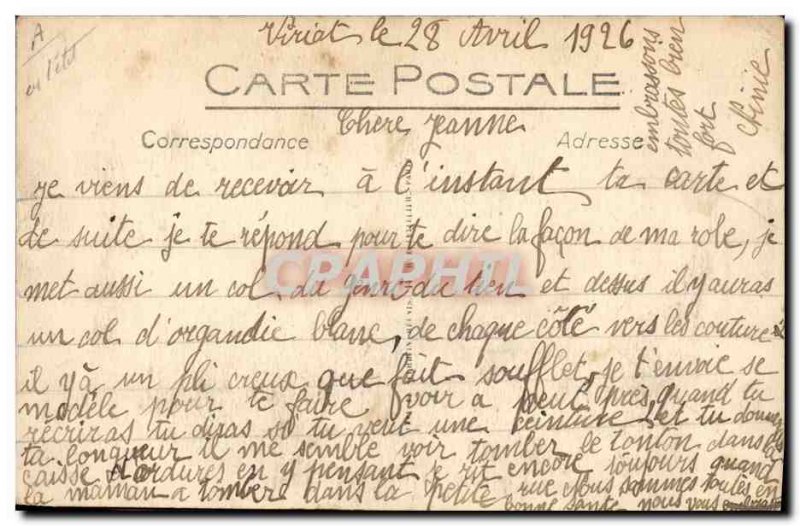 Viriat le 28 Avril 1926
CARTE POSTALE
Chere Jeanne
Correspondance
Adresse
je viens de recevoir à l'instant ta carte et
de suite je te répond pour te dire la façon de ma robe, je
met aussi un col du genre du tien et dessus il y auras
un col d'organdie blanc, de chaque côté vers les couture
il y à un pli creux que fait soufflet, je t'envoie se
modèle pour te faire voir a peut près, quand tu
récriras tu diras si tu veut une ceinture et tu donnes
ta longueur il me semble voir tomber le tonton dans la
caisse d'ordures en y pensant je rit encore toujours quand
la maman a tombere dans la petite rue nous sommes toutes en
bonne santé nous vous
embrassons
toutes bien
fort
A
en l'été
CPAPHIL